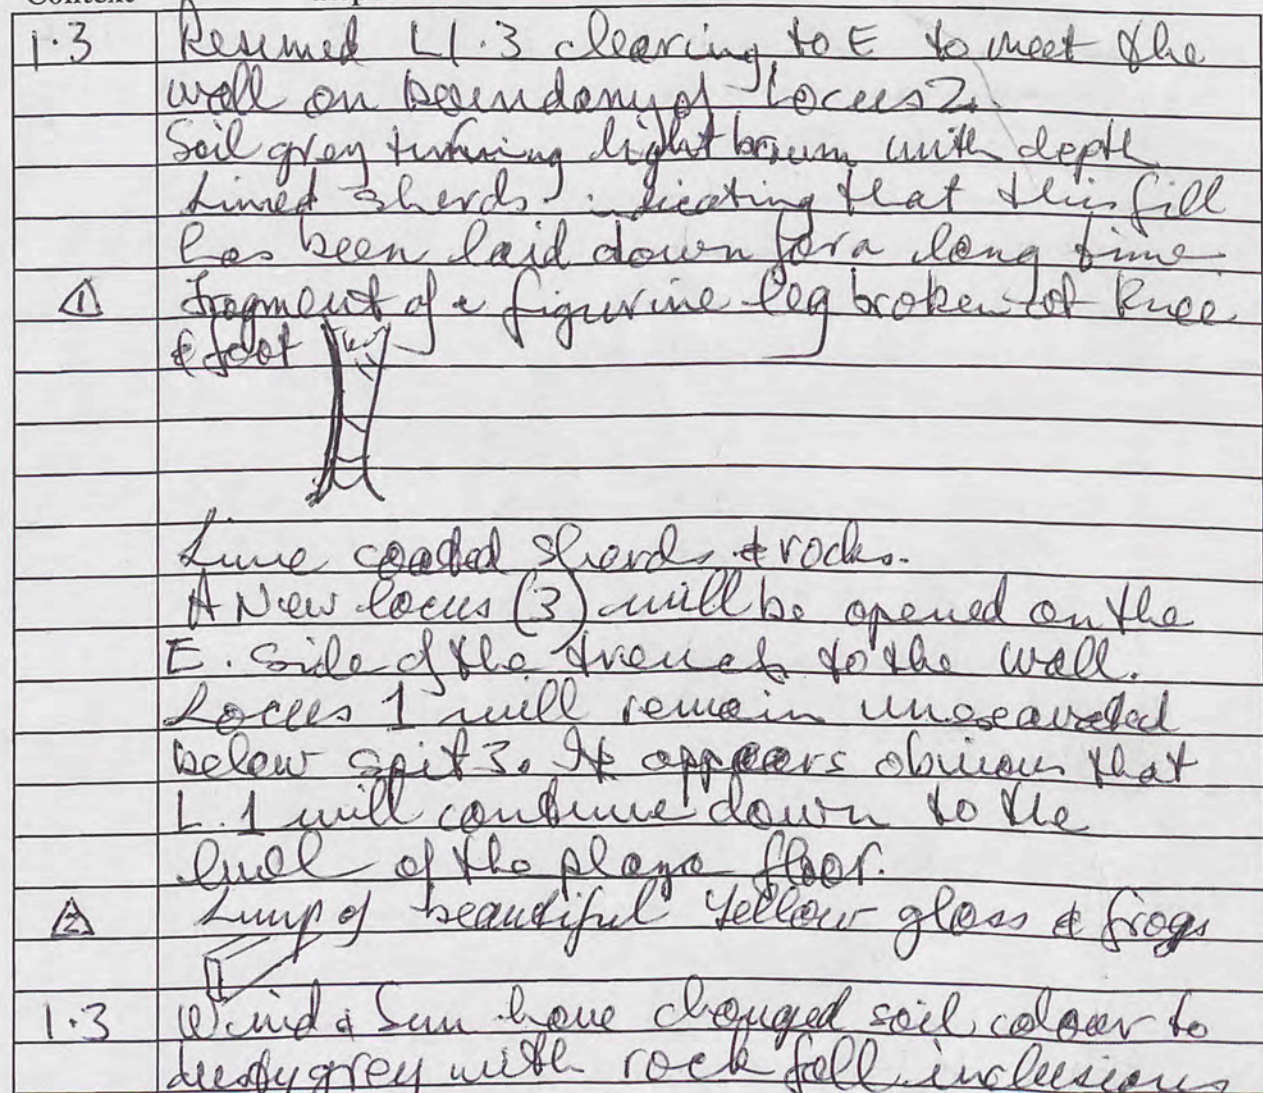 1.3 Resumed L1.3 clearing to E to meet the
wall on boundary of Locus 2.
Soil grey turning light brown with depth
Limed sherds indicating that this fill
has been laid down for a long time.
1 Fragment of a figurine leg broken at knee
& foot
Lime coated sherds & rocks.
A New locus (3) will be opened on the
E. side of the trench to the wall.
Locus 1 will remain unexcavated
below spit 3. It appears obvious that
L.1 will continue down to the
level of the plaza floor.
2 Lump of beautiful yellow glass & frags
1.3 Wind & Sun have changed soil colour to
dusty grey with rock fall inclusions